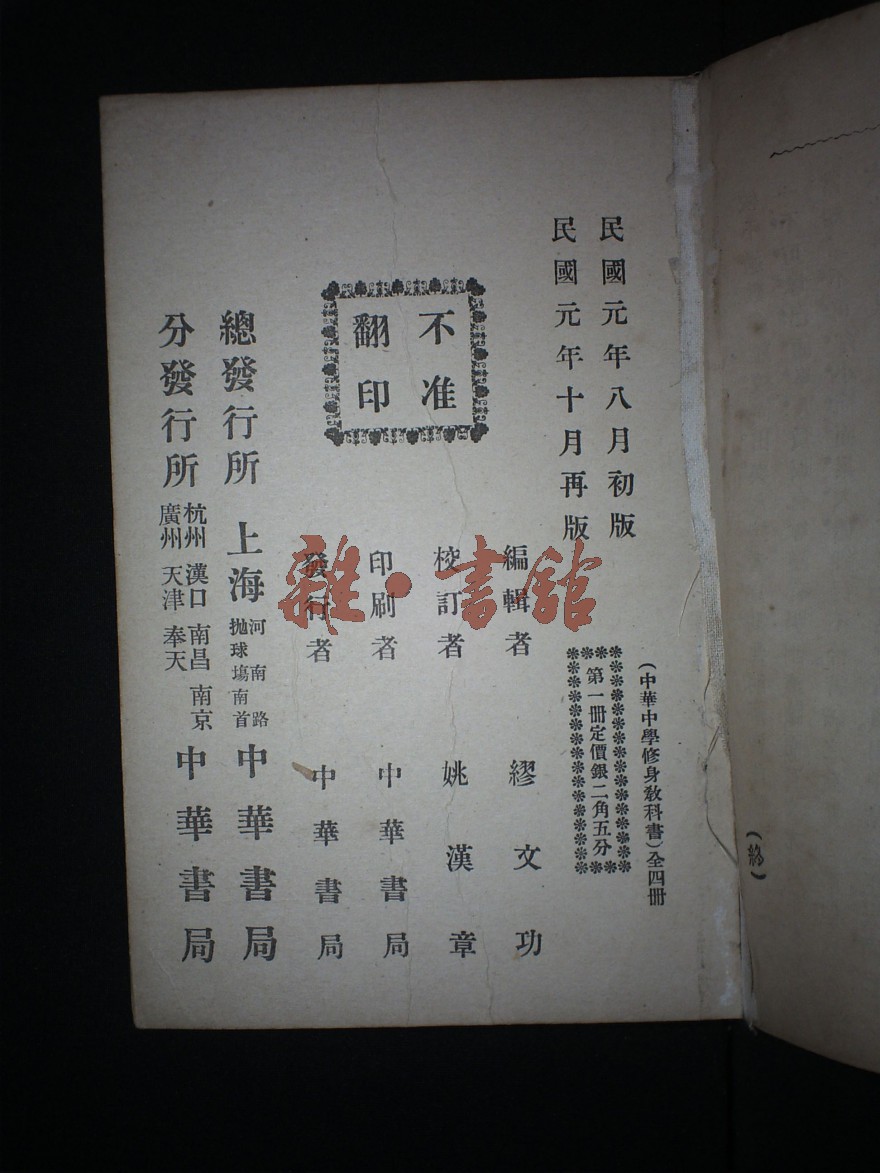 (終)
(中華中學修身敎科書)全四冊
第一冊定價銀二角五分
民國元年八月初版
民國元年十月再版
編輯者 繆文功
校訂者 姚漢章
印刷者 中華書局
發行者 中華書局
不准
翻印
總發行所 上海 河南路
拋球場南首 中華書局
分發行所 杭州 漢口 南昌 南京
廣州 天津 奉天 中華書局
雜·書館